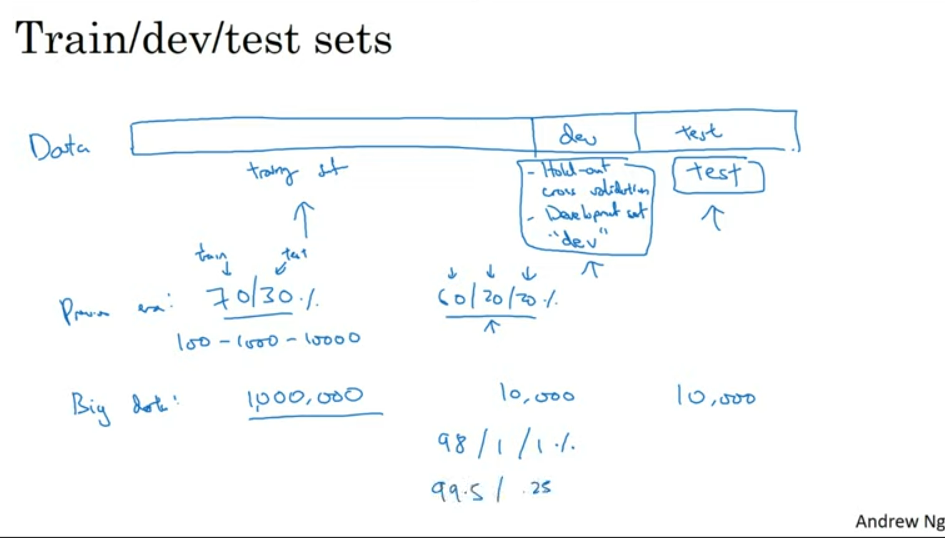 Train/dev/test sets
Data
dev
test
training set
- Hold-out
cross validation
- Development set
"dev"
test
train
test
Previous era:
70/30 %
60/20/20 %
100 - 1000 - 10000
Big data:
1,000,000
10,000
10,000
98 / 1 / 1 %
99.5 / .25
Andrew Ng